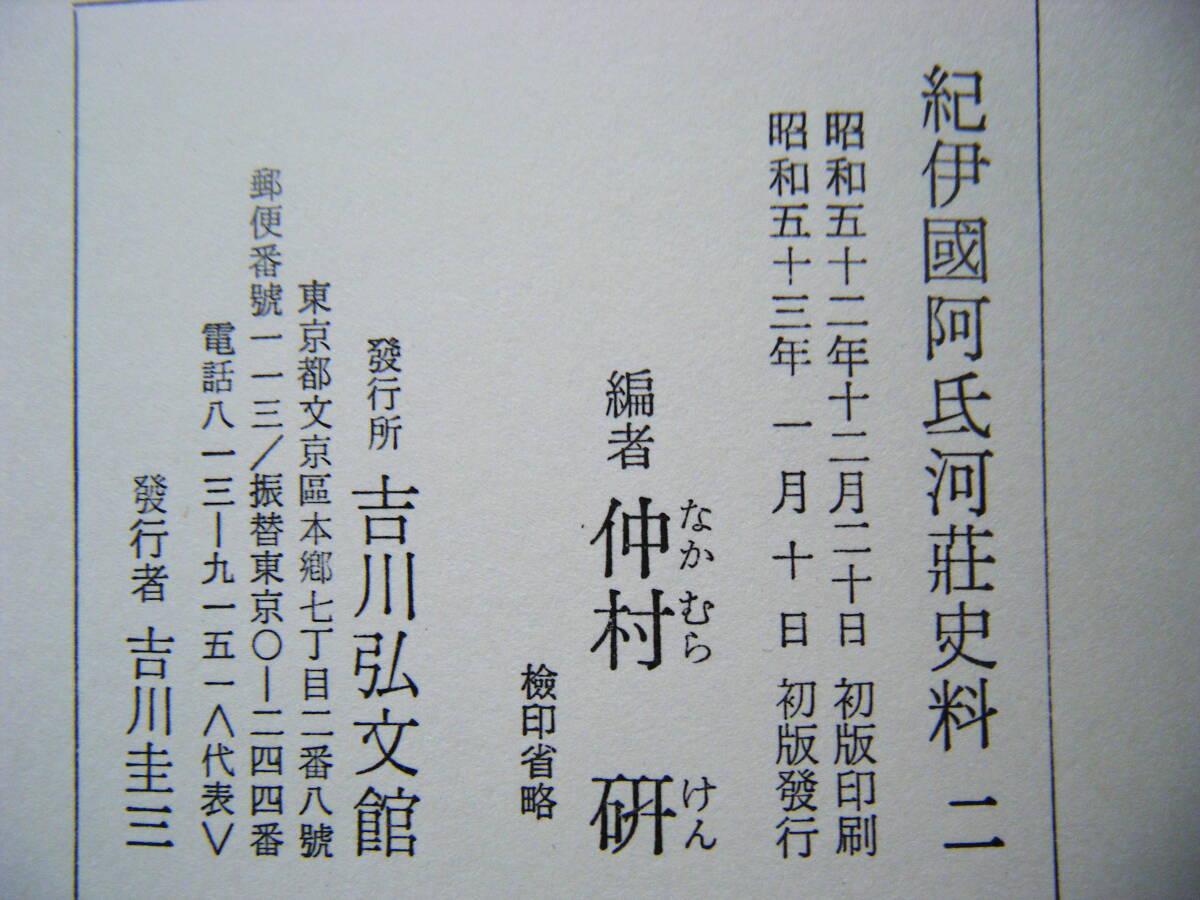 紀伊國阿氐河莊史料 二
昭和五十二年十二月二十日 初版印刷
昭和五十三年 一月 十日 初版發行
なか むら けん
編者 仲村 研
檢印省略
發行所 吉川弘文館
東京都文京區本鄕七丁目二番八號
郵便番號一一三/振替東京〇―二四四番
電話八一三―九一五一<代表>
發行者 吉川圭三